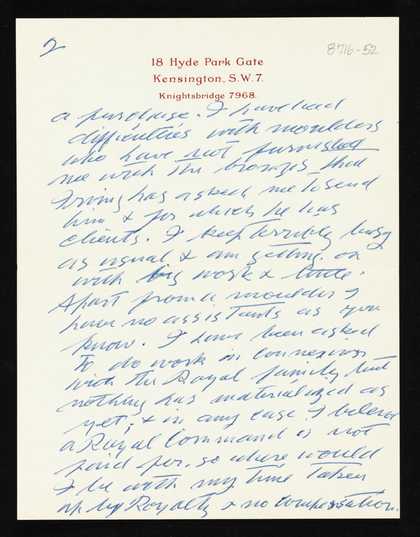 2
8716-52
18 Hyde Park Gate
Kensington, S.W.7.
Knightsbridge 7968.
a purchase. I have had
difficulties with moulders
who have not furnished
me with the bronzes that
Irving has asked me to send
him & for which he has
clients. I keep terribly busy
as usual & am getting on
with big work & little.
Apart from a moulder I
have no assistants as you
know. I have been asked
to do work in connexion
with the Royal family but
nothing has materialized as
yet; & in any case I believe
a Royal Command is not
paid for, so where would
I be with my time taken
up by Royalty & no compensation.